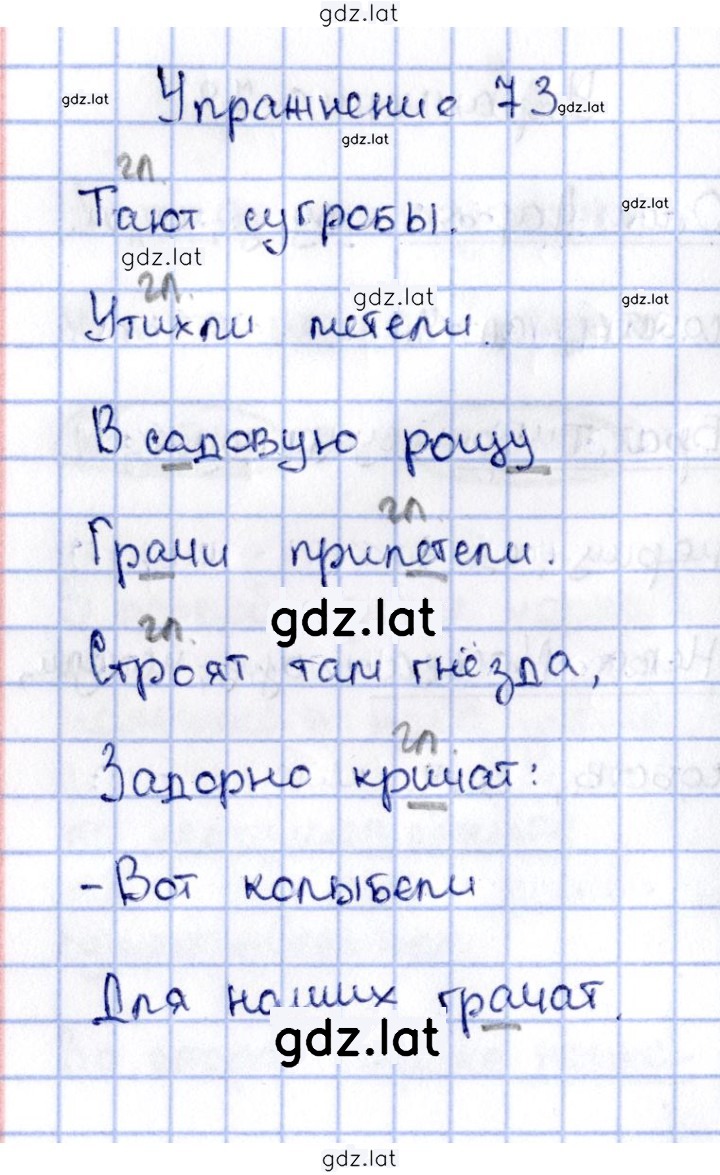 gdz.lat
Упражнение 73
gdz.lat
gdz.lat
gdz.lat
гл.
Тают сугробы.
gdz.lat
gdz.lat
гл.
gdz.lat
gdz.lat
Утихли метели.
В садовую рощу
гл.
Грачи прилетели.
gdz.lat
гл.
Строят там гнёзда,
гл.
Задорно кричат:
- Вот колыбели
Для наших грачат.
gdz.lat
gdz.lat